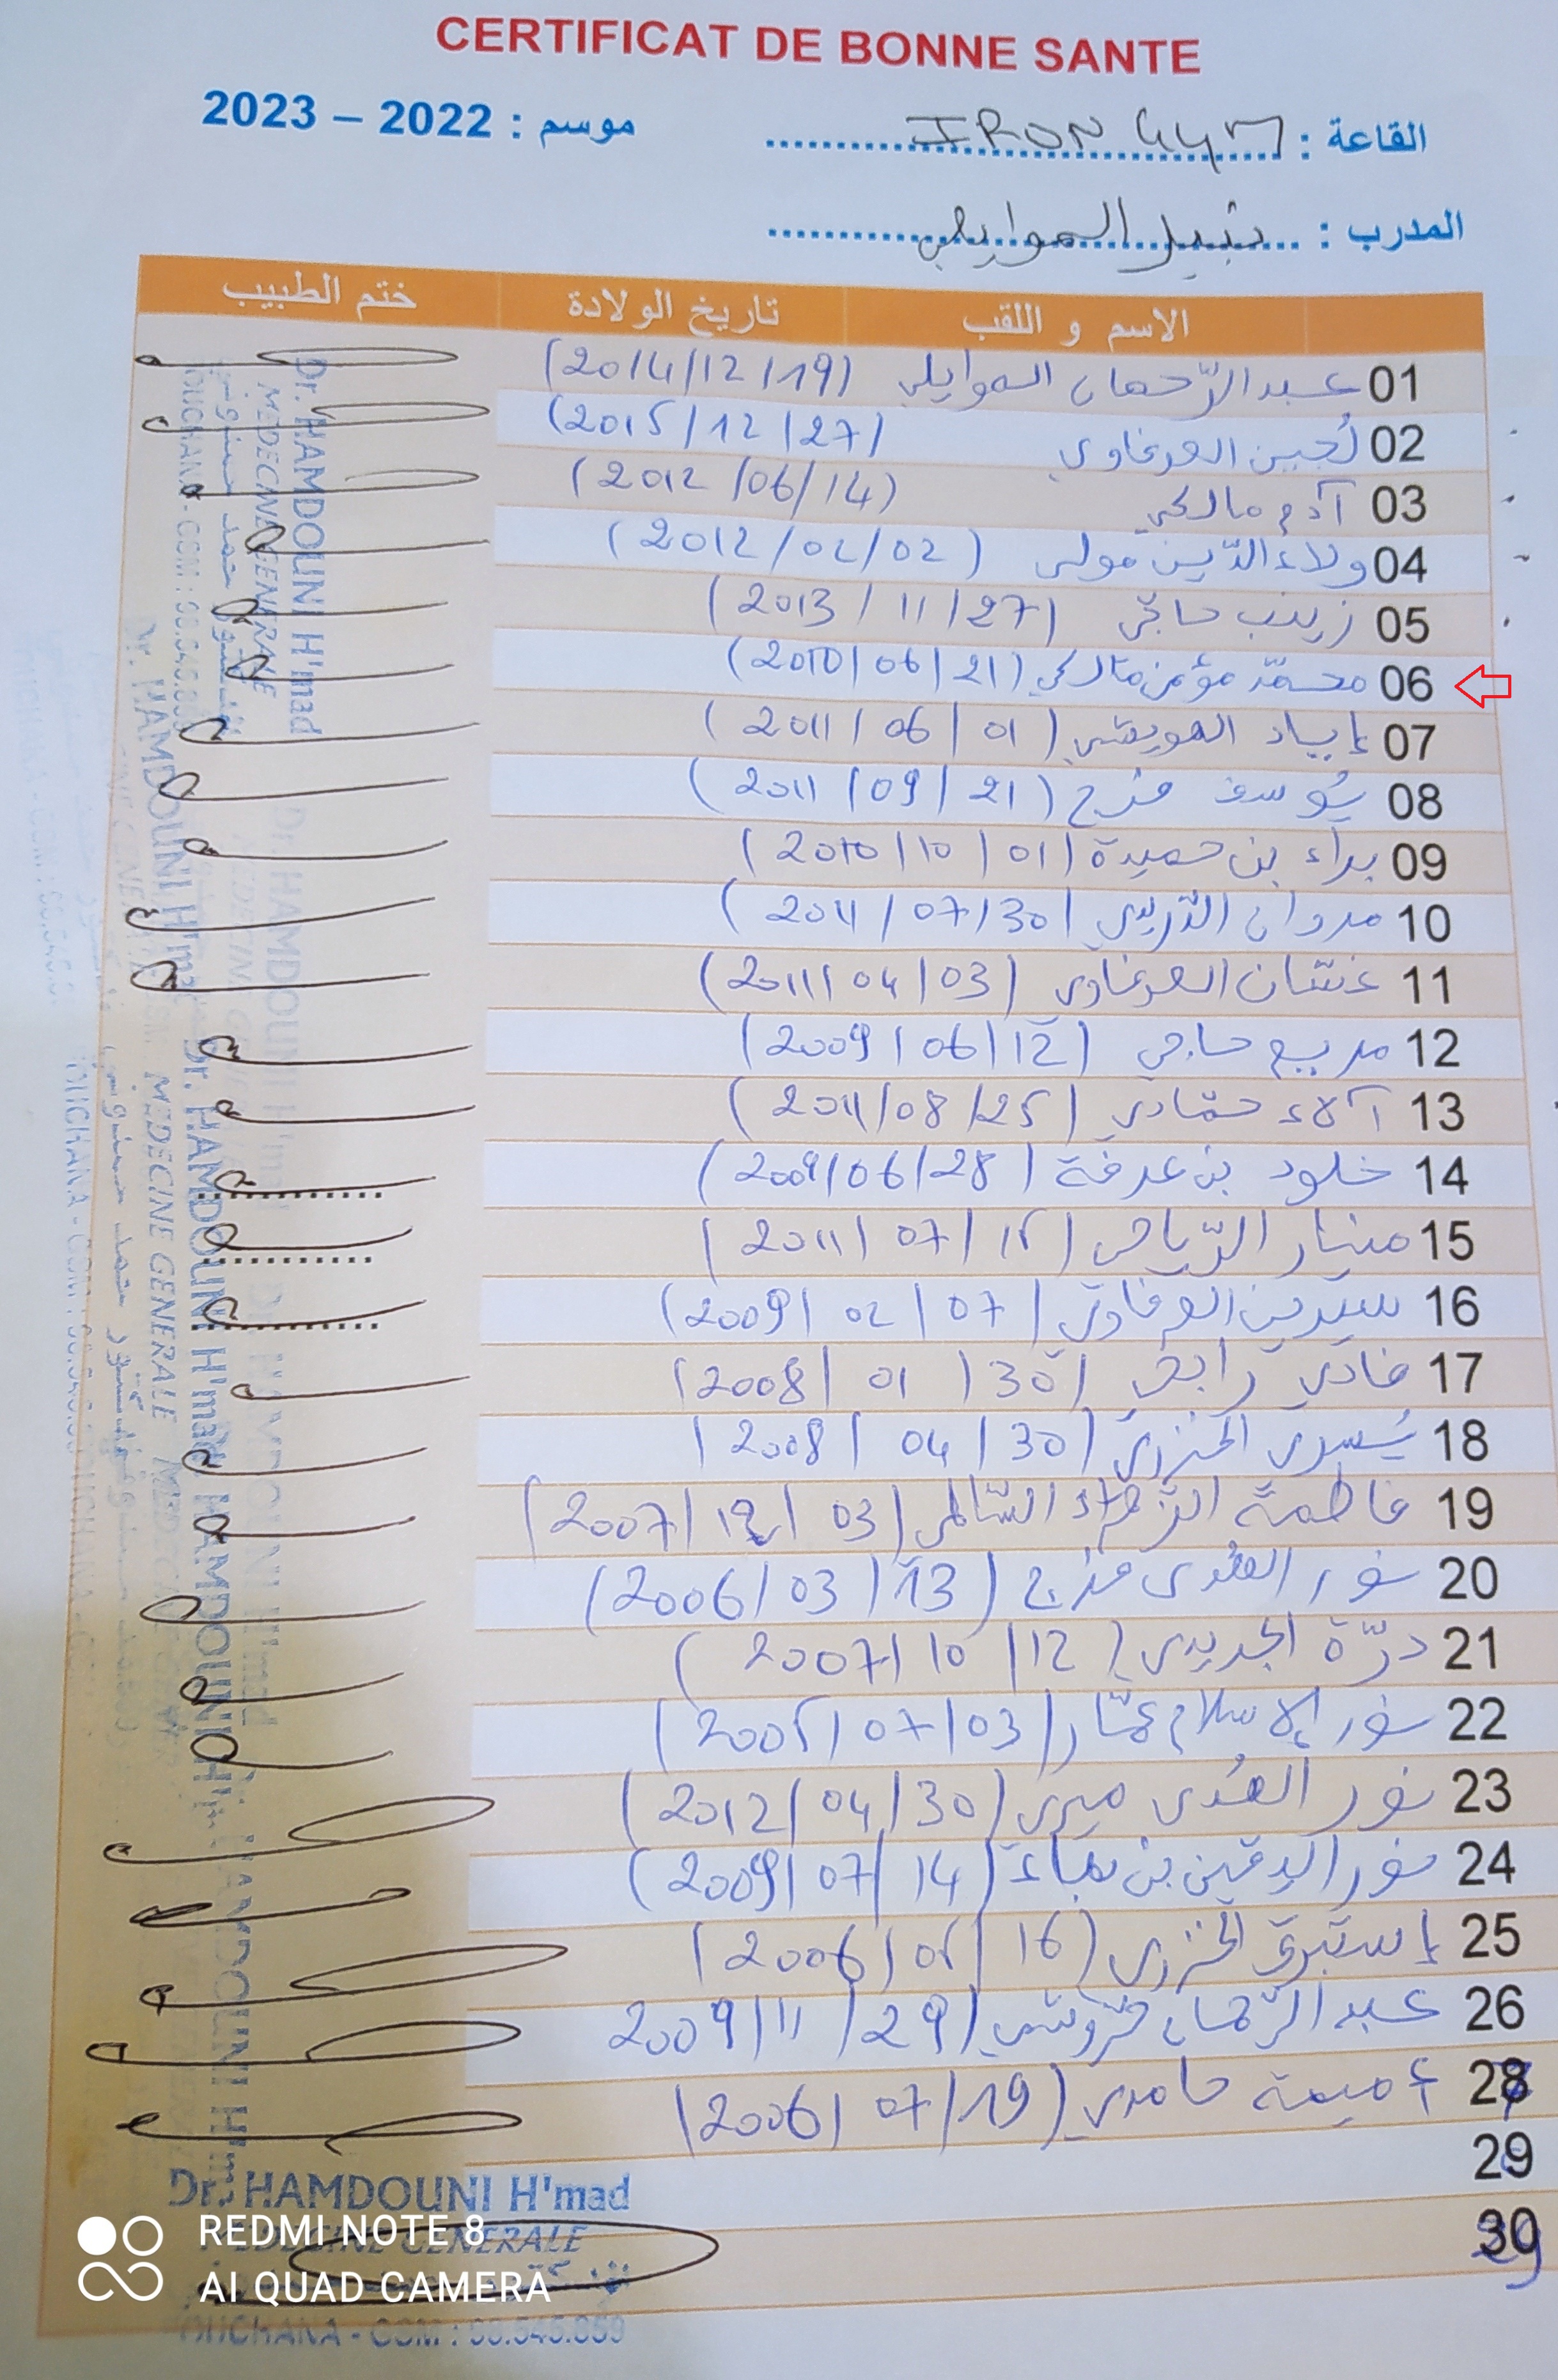 CERTIFICAT DE BONNE SANTE
القاعة : IRON GYM موسم : 2022 – 2023
المدرب : نبيل الموايلي
الاسم و اللقب تاريخ الولادة ختم الطبيب
01 عبد الرّحمان الموايلي (2014/12/19)
02 لُجين العرفاوي (2015/12/27)
03 آدم مالكي (2012/06/14)
04 ولاء الدّين مولى (2012/02/02)
05 زينب حاجّي (2013/11/27)
06 محمّد مؤمن مالكي (2010/06/21)
07 إياد العويشي (2011/06/01)
08 يُوسف فرج (2011/09/21)
09 براء بن حميدة (2010/10/01)
10 مروان الدّريدي (2011/07/30)
11 غسّان العرفاوي (2011/04/03)
12 مريم حاجي (2009/06/12)
13 آلاء حمّادي (2011/08/25)
14 خلود بن عرفة (2009/06/28)
15 منار الرّياحي (2011/07/15)
16 سيرين العرفاوي (2009/02/07)
17 فادي رابحي (2008/01/30)
18 يُسرى الخنزري (2008/04/30)
19 فاطمة الزّهراء السّالمي (2007/12/03)
20 نور الهُدى فرج (2006/03/13)
21 درّة الجديدي (2007/10/12)
22 نور الإسلام عمّار (2005/07/03)
23 نور الهُدى ميري (2012/04/30)
24 نور اليقين بن (2009/07/14)
25 إستبرق الخنزري (2006/05/16)
26 عبد الرّحمان (2009/11/29
28 أميمة حامدي (2006/07/19)
29
30
Dr. HAMDOUNI H'mad
MEDECINE GENERALE
Dr. HAMDOUNI H'mad
MEDECINE GENERALE
REDMI NOTE 8
AI QUAD CAMERA